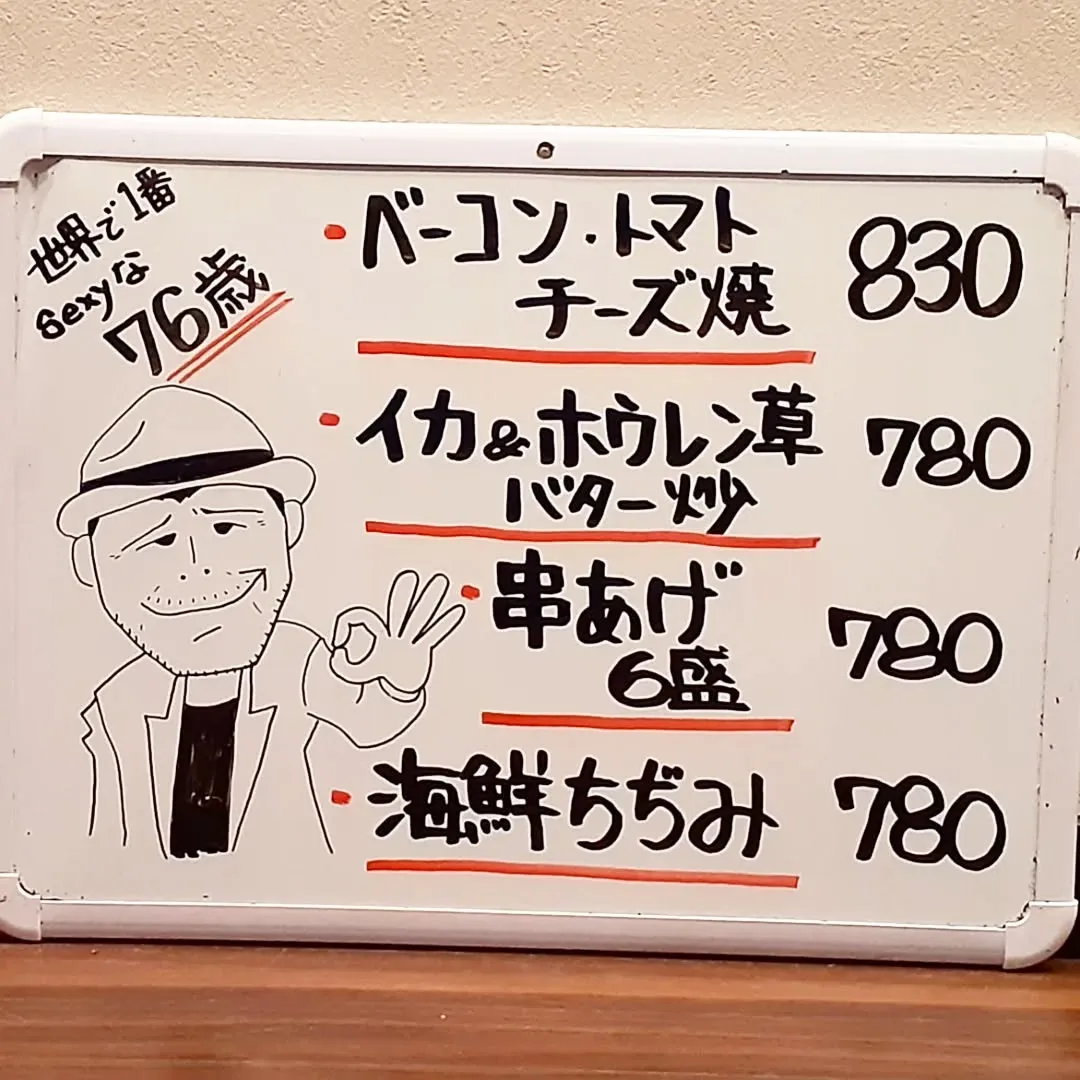 世界で1番
sexyな
76歳
・ベーコン・トマト
チーズ焼 830
・イカ&ホウレン草
バター炒 780
・串あげ
6盛 780
・海鮮ちぢみ 780